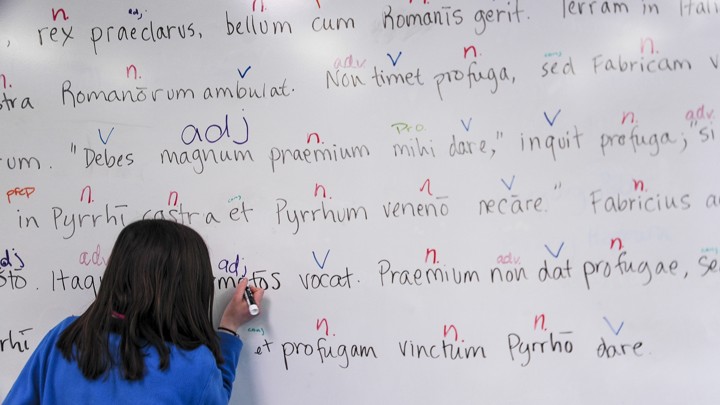 n. adj. n. n. n.
, rex praeclarus, bellum cum Romanīs gerit. Terram in Itali
n. n. V adv V n. conj n.
tra Romanōrum ambulat. Non timet profuga, sed Fabricam v
V adj n. pro. V V n. adv.
um. "Debes magnum praemium mihi dare," inquit profuga; "si
prep n. n. conj n. n V n.
in Pyrrhī castra et Pyrrhum venenō necāre." Fabricius a
dj adv adj V n. adv. V n. conj
stō. Itaq matōs vocat. Praemium non dat profugae, se
conj n. n. n. V
rhī et profugam vinctum Pyrrhō dare.